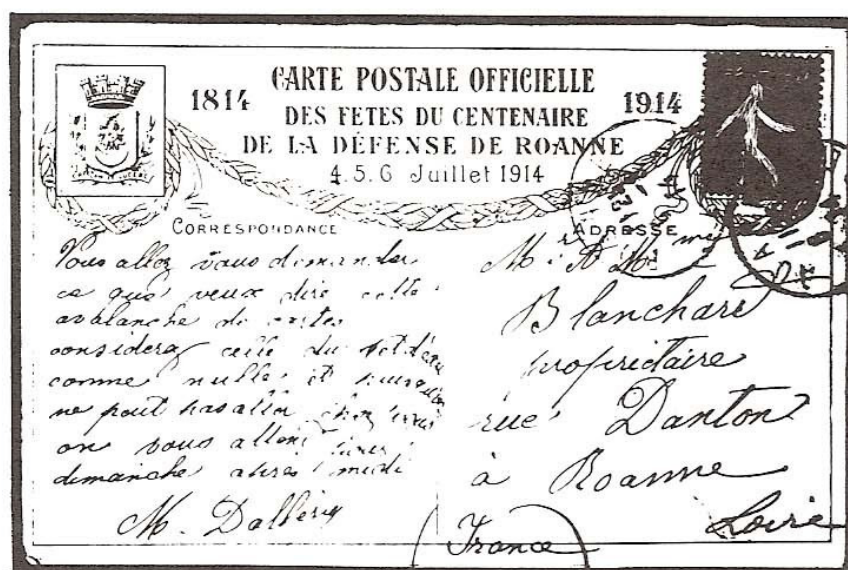 1814 CARTE POSTALE OFFICIELLE 1914
DES FETES DU CENTENAIRE
DE LA DÉFENSE DE ROANNE
4. 5. 6 Juillet 1914
CORRESPONDANCE
Vous allez vous demander
ce que veux dire cette
avalanche de cartes
considerez celle du
comme nulle et
ne peut pas aller chez
on vous attend
dimanche après midi
M.
ADRESSE
Mr & Mme
Blanchard
propriétaire
rue Danton
à Roanne
Loire
France